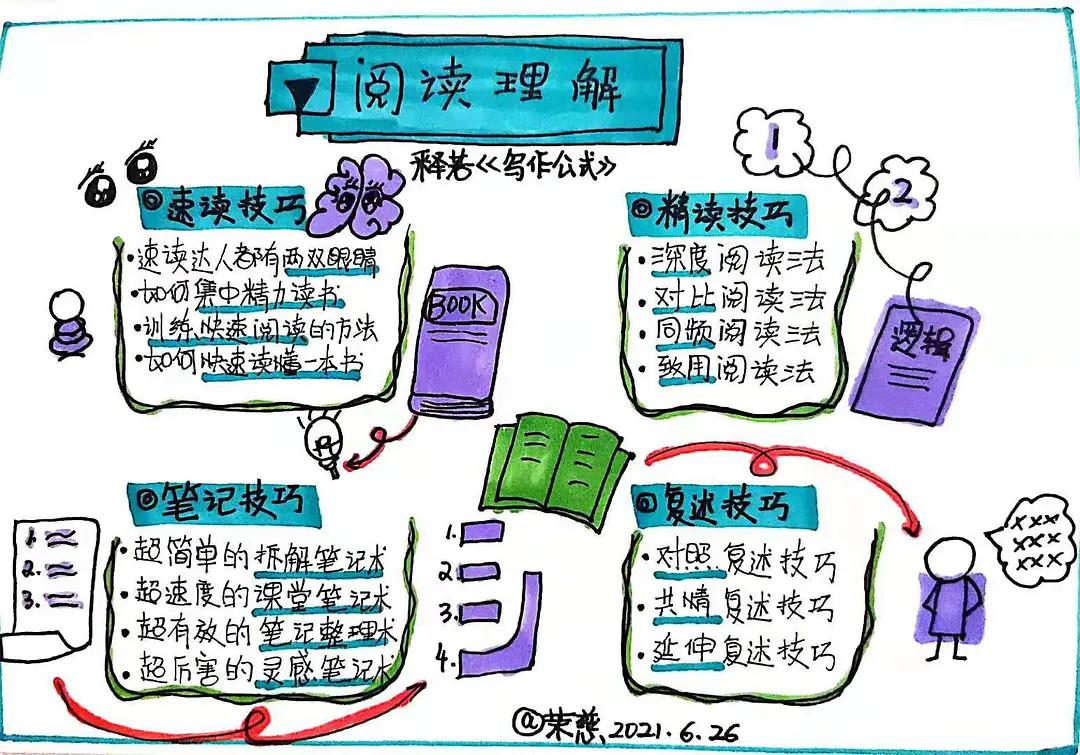 阅读理解
释若《写作公式》
速读技巧
·速读达人都有两双眼睛
·如何集中精力读书
·训练快速阅读的方法
·如何快速读懂一本书
BOOK
1
2
精读技巧
·深度阅读法
·对比阅读法
·同频阅读法
·致用阅读法
逻辑
笔记技巧
·超简单的拆解笔记术
·超速度的课堂笔记术
·超有效的笔记整理术
·超厉害的灵感笔记术
1.
2.
3.
1.
2.
3.
4.
复述技巧
·对照复述技巧
·共情复述技巧
·延伸复述技巧
xxx
xxx
xxx
@荣慈 2021.6.26